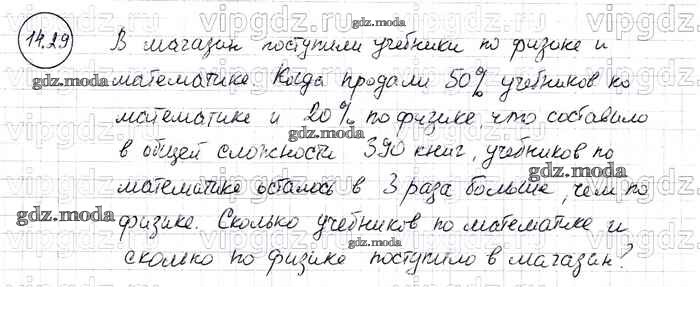 14.29
В магазин поступили учебники по физике и
математике. Когда продали 50% учебников по
математике и 20% по физике, что составило
в общей сложности 390 книг, учебников по
математике осталось в 3 раза больше, чем по
физике. Сколько учебников по математике и
сколько по физике поступило в магазин?
gdz.moda
gdz.moda
gdz.moda
gdz.moda
gdz.moda
gdz.moda
gdz.moda